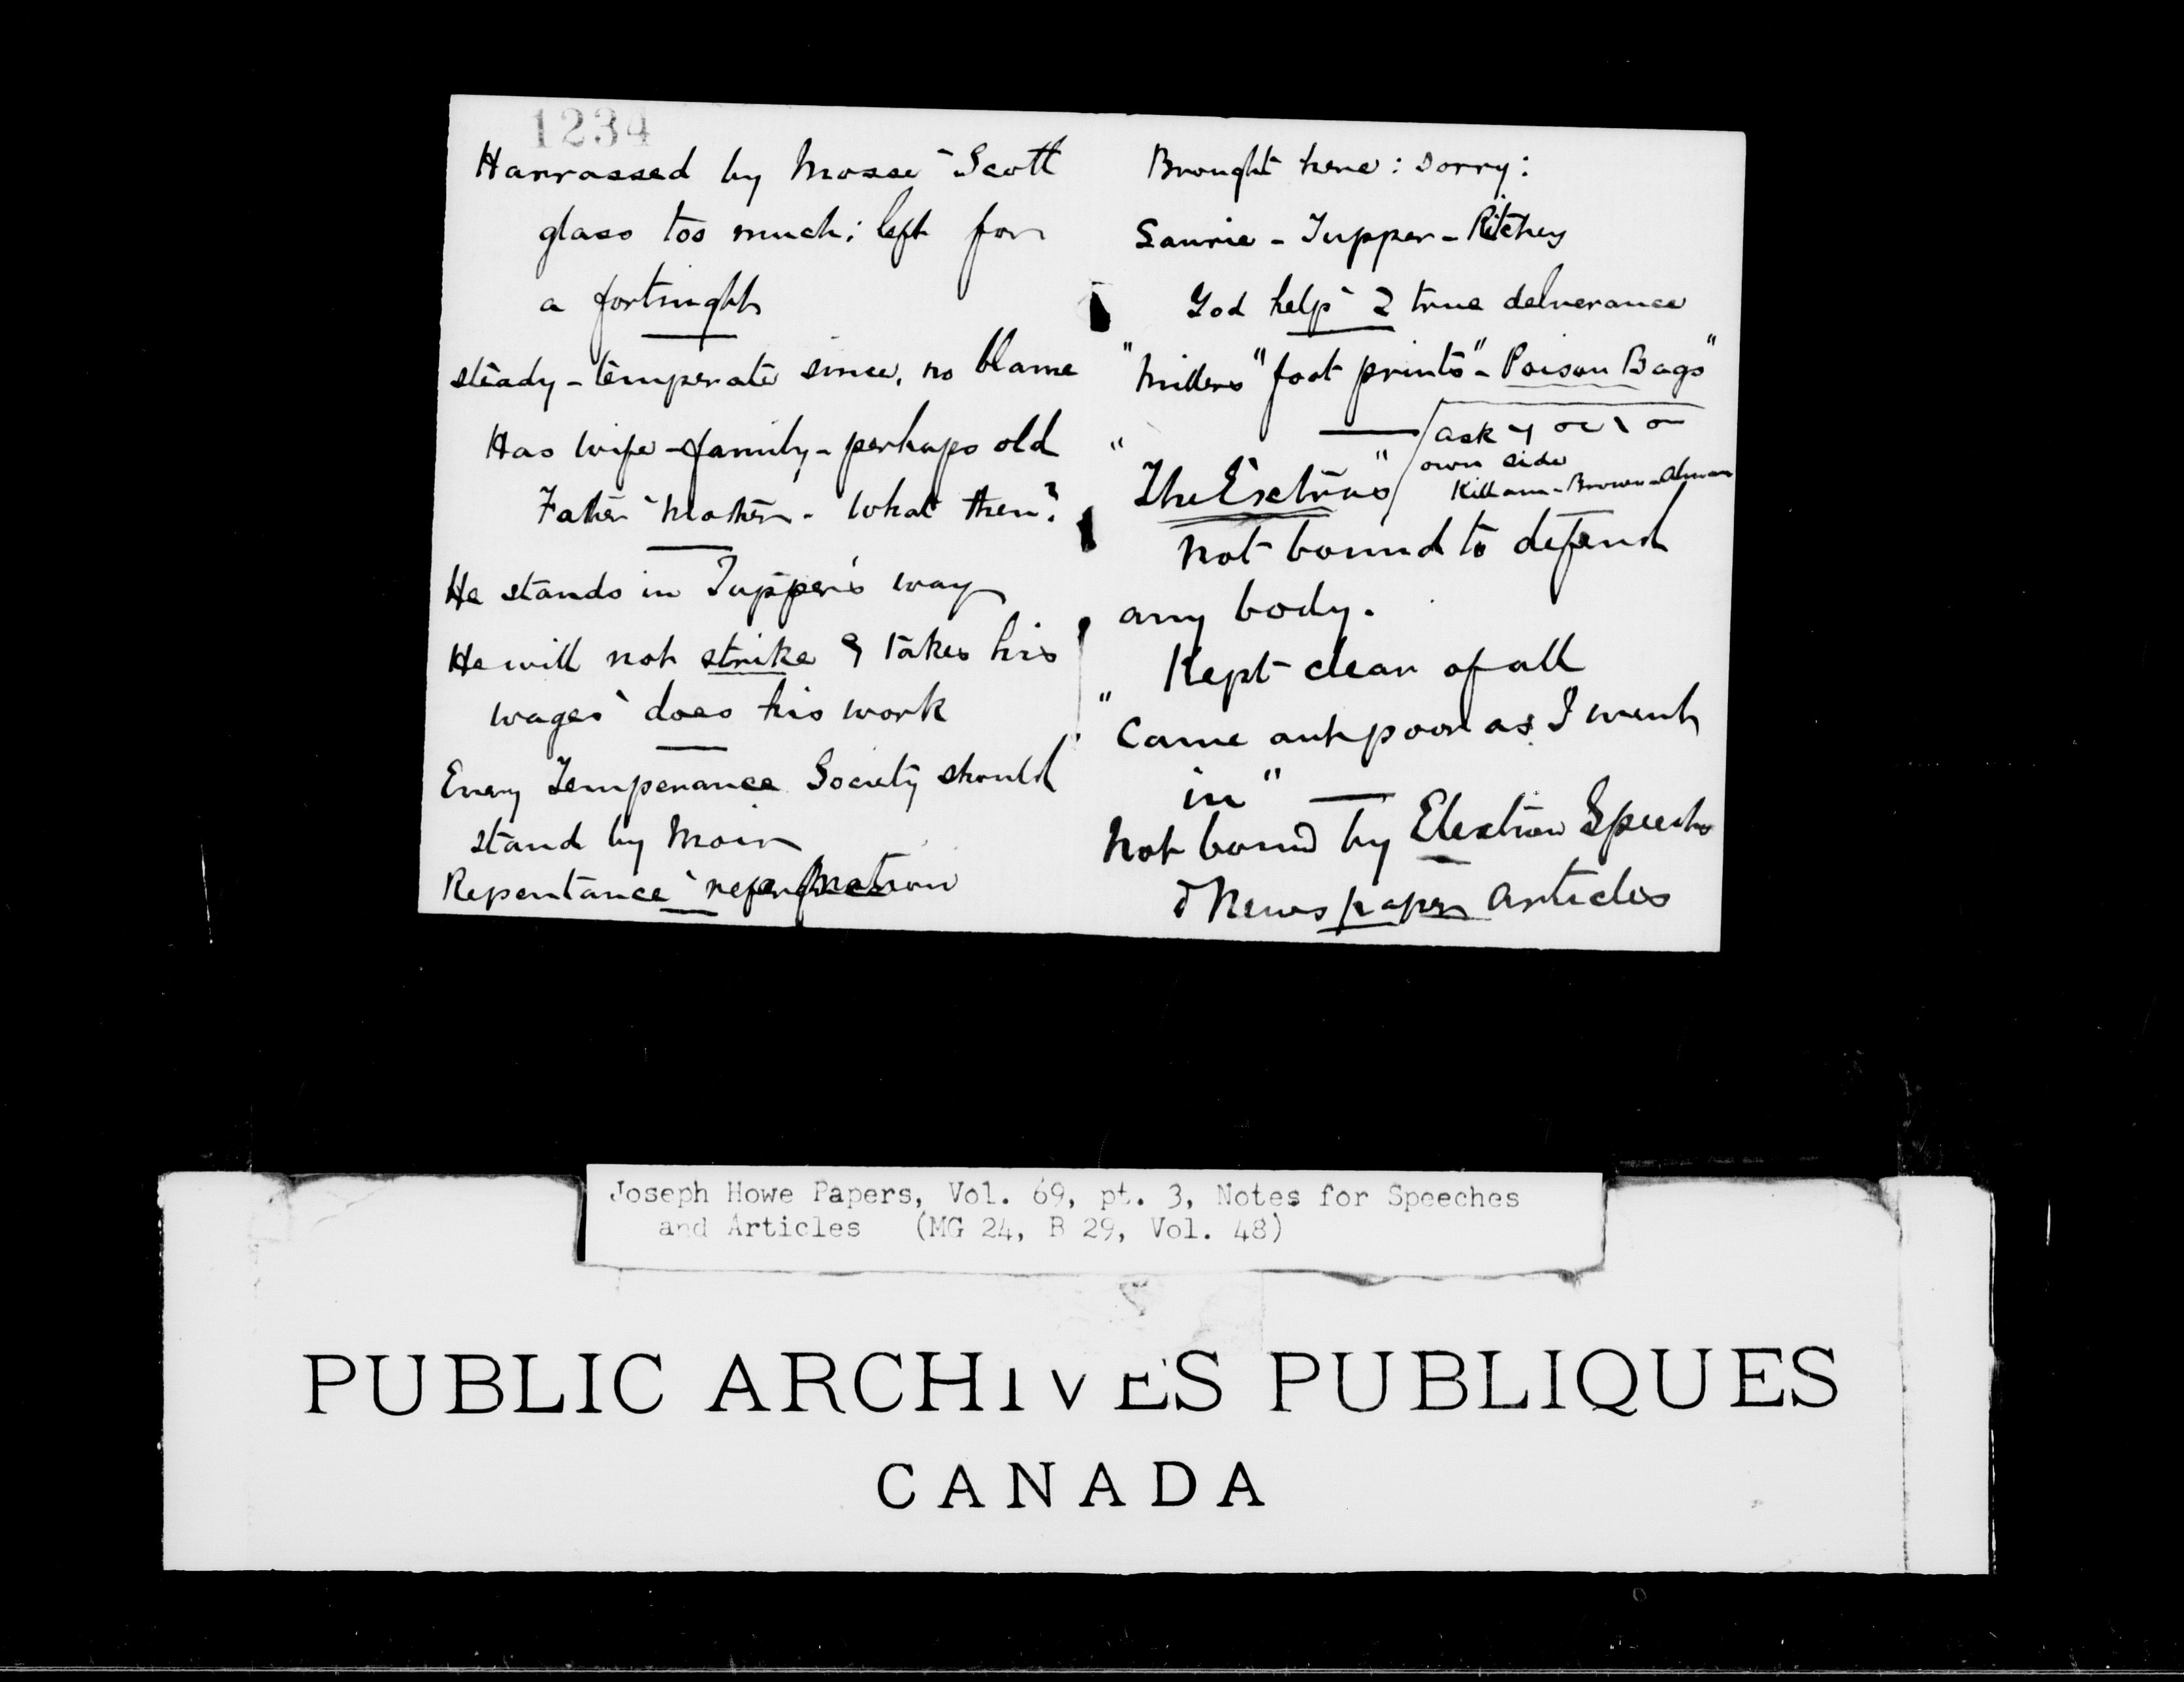 1234
Harrassed by Mosse Scott
glass too much; left for
a fortnight
steady - temperate since, no blame
Has wife - family - perhaps old
Father Mother - What then?
He stands in Tupper's way
He will not strike & takes his
wages does his work
Every Temperance Society should
stand by Moir
Repentance reformation
Brought here: sorry:
Laurie - Tupper - Ritchey
God help 2 true deliverance
"Millers "foot prints" - Poison Bags"
ask
own side
Killam - Brown -
"The Extras"
not bound to defend
any body.
Kept clear of all
"Came out poor as I went
in"
Not bound by Election Speechs
Newspaper articles
Joseph Howe Papers, Vol. 69, pt. 3, Notes for Speeches
and Articles (MG 24, B 29, Vol. 48)
PUBLIC ARCHIVES PUBLIQUES
CANADA